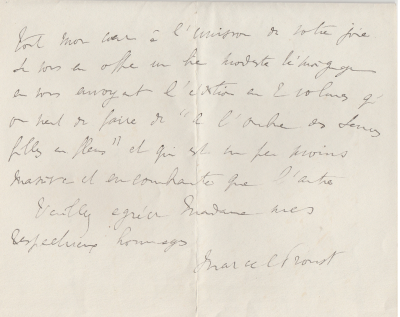 tout mon cœur à l'unisson de votre joie
Je vous en offre un très modeste témoignage
en vous envoyant l'édition en 2 volumes qu'
on vient de faire de "A l'ombre des Jeunes
filles en fleurs" et qui est un peu moins
massive et encombrante que l'autre
Veuillez agréer Madame mes
respectueux hommages
Marcel Proust